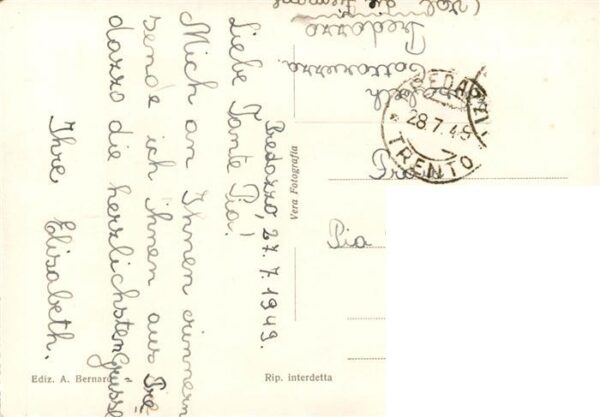 Predazzo, 27.7.1949.
Liebe Tante Pia!
Mich an Ihnen erinnern
sende ich ihnen aus Pre
dazzo die herzlichsten Grüsse
Ihre Elisabeth.
Predazzo
(Val di
Pia
PREDAZZO
28.7.49
TRENTO
Vera Fotografia
Ediz. A. Bernard
Rip. interdetta